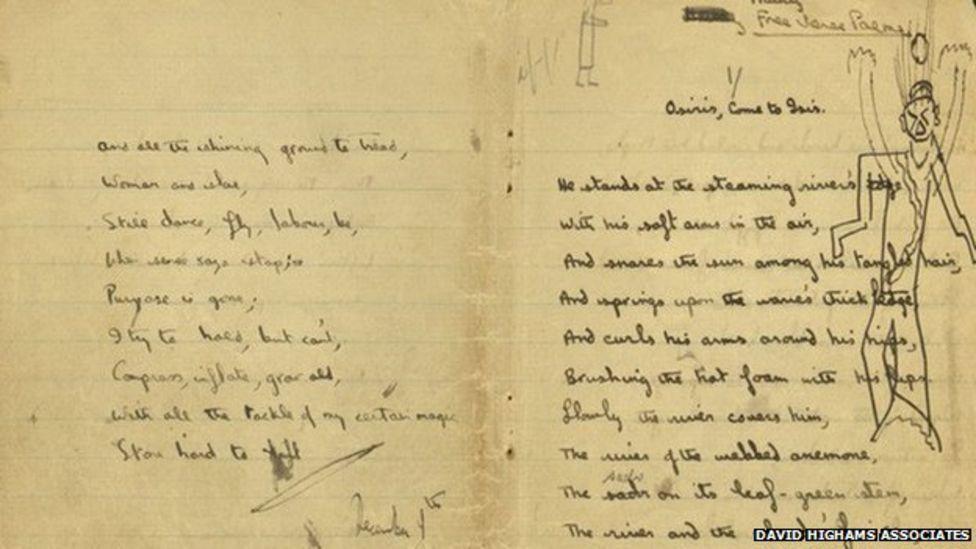 and all the shining ground to tread,
Woman and slave,
Still dance, fly, labour, be,
When sense says stop;
Purpose is gone;
I try to hold, but can't,
Compress, inflate, grow old,
With all the tackle of my certain magic
Stone hard to lift
December 4th
Mainly
Free Verse Poems
1/
Osiris, Come to Isis.
He stands at the steaming river's edge
With his soft arms in the air,
And snares the sun among his tangled hair,
And springs upon the wave's thick ledge
And curls his arms around his hips,
Brushing the hot foam with his lips.
Slowly the river covers him,
The river of the webbed anemone,
The on its leaf-green stem,
The river and the
DAVID HIGHAMS ASSOCIATES